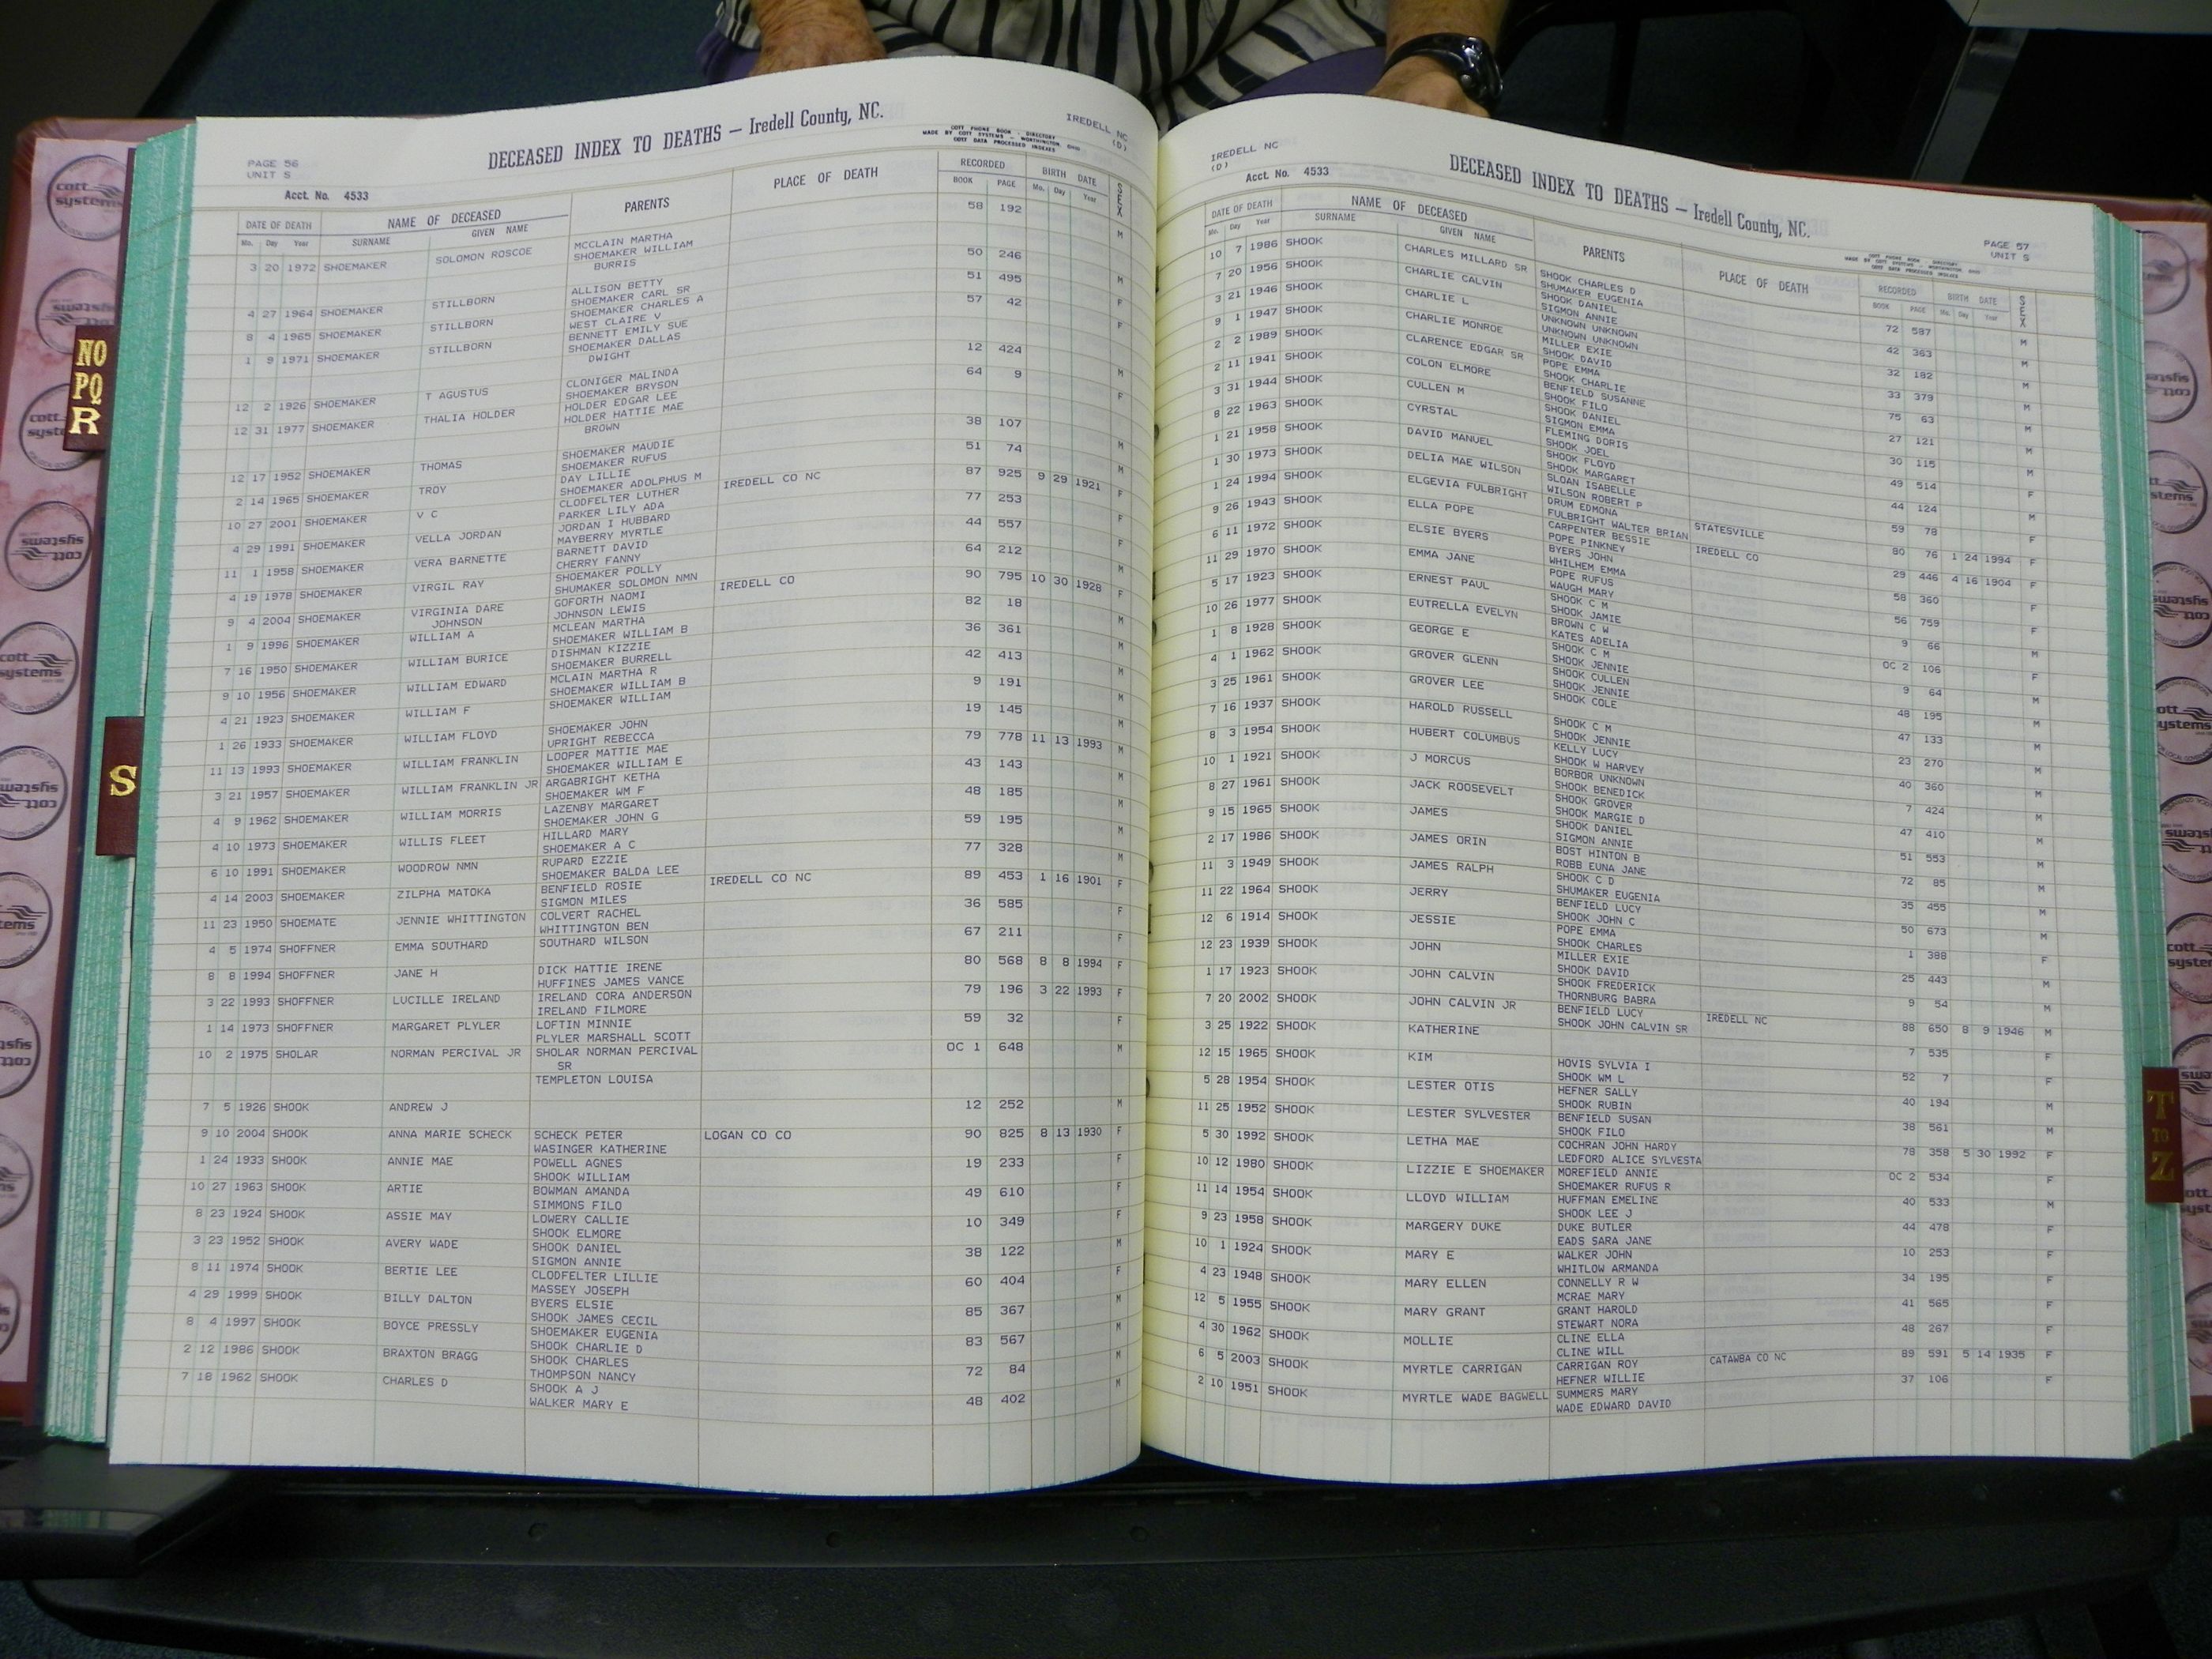 PAGE 56
UNIT S
DECEASED INDEX TO DEATHS — Iredell County, NC.
COTT PHONE BOOK - DIRECTORY
MADE BY COTT SYSTEMS — WORTHINGTON, OHIO
COTT DATA PROCESSED INDEXES
IREDELL NC
(D)
Acct. No. 4533
DATE OF DEATH NAME OF DECEASED PARENTS PLACE OF DEATH RECORDED BIRTH DATE SEX
Mo. Day Year SURNAME GIVEN NAME BOOK PAGE Mo. Day Year
3 20 1972 SHOEMAKER SOLOMON ROSCOE MCCLAIN MARTHA 58 192 M
SHOEMAKER WILLIAM
BURRIS
4 27 1964 SHOEMAKER STILLBORN ALLISON BETTY 50 246 M
SHOEMAKER CARL SR
8 4 1965 SHOEMAKER STILLBORN SHOEMAKER CHARLES A 51 495 F
WEST CLAIRE V
1 9 1971 SHOEMAKER STILLBORN BENNETT EMILY SUE 57 42 F
SHOEMAKER DALLAS
DWIGHT
12 2 1926 SHOEMAKER T AGUSTUS CLONIGER MALINDA 12 424 M
SHOEMAKER BRYSON
12 31 1977 SHOEMAKER THALIA HOLDER HOLDER EDGAR LEE 64 9 F
HOLDER HATTIE MAE
BROWN
12 17 1952 SHOEMAKER THOMAS SHOEMAKER MAUDIE 38 107 M
SHOEMAKER RUFUS
2 14 1965 SHOEMAKER TROY DAY LILLIE 51 74 M
SHOEMAKER ADOLPHUS M
10 27 2001 SHOEMAKER V C CLODFELTER LUTHER IREDELL CO NC 87 925 9 29 1921 F
PARKER LILY ADA
4 29 1991 SHOEMAKER VELLA JORDAN JORDAN I HUBBARD 77 253 F
MAYBERRY MYRTLE
11 1 1958 SHOEMAKER VERA BARNETTE BARNETT DAVID 44 557 F
CHERRY FANNY
4 19 1978 SHOEMAKER VIRGIL RAY SHOEMAKER POLLY 64 212 M
SHUMAKER SOLOMON NMN
9 4 2004 SHOEMAKER VIRGINIA DARE GOFORTH NAOMI IREDELL CO 90 795 10 30 1928 F
JOHNSON JOHNSON LEWIS
1 9 1996 SHOEMAKER WILLIAM A MCLEAN MARTHA 82 18 M
SHOEMAKER WILLIAM B
7 16 1950 SHOEMAKER WILLIAM BURICE DISHMAN KIZZIE 36 361 M
SHOEMAKER BURRELL
9 10 1956 SHOEMAKER WILLIAM EDWARD MCLAIN MARTHA R 42 413 M
SHOEMAKER WILLIAM B
4 21 1923 SHOEMAKER WILLIAM F SHOEMAKER WILLIAM 9 191 M
1 26 1933 SHOEMAKER WILLIAM FLOYD SHOEMAKER JOHN 19 145 M
UPRIGHT REBECCA
11 13 1993 SHOEMAKER WILLIAM FRANKLIN LOOPER MATTIE MAE 79 778 11 13 1993 M
SHOEMAKER WILLIAM E
3 21 1957 SHOEMAKER WILLIAM FRANKLIN JR ARGABRIGHT KETHA 43 143 M
SHOEMAKER WM F
4 9 1962 SHOEMAKER WILLIAM MORRIS LAZENBY MARGARET 48 185 M
SHOEMAKER JOHN G
4 10 1973 SHOEMAKER WILLIS FLEET HILLARD MARY 59 195 M
SHOEMAKER A C
6 10 1991 SHOEMAKER WOODROW NMN RUPARD EZZIE 77 328 M
SHOEMAKER BALDA LEE
4 14 2003 SHOEMAKER ZILPHA MATOKA BENFIELD ROSIE IREDELL CO NC 89 453 1 16 1901 F
SIGMON MILES
11 23 1950 SHOEMATE JENNIE WHITTINGTON COLVERT RACHEL 36 585 F
WHITTINGTON BEN
4 5 1974 SHOFFNER EMMA SOUTHARD SOUTHARD WILSON 67 211 F
8 8 1994 SHOFFNER JANE H DICK HATTIE IRENE 80 568 8 8 1994 F
HUFFINES JAMES VANCE
3 22 1993 SHOFFNER LUCILLE IRELAND IRELAND CORA ANDERSON 79 196 3 22 1993 F
IRELAND FILMORE
1 14 1973 SHOFFNER MARGARET PLYLER LOFTIN MINNIE 59 32 F
PLYLER MARSHALL SCOTT
10 2 1975 SHOLAR NORMAN PERCIVAL JR SHOLAR NORMAN PERCIVAL OC 1 648 M
SR
TEMPLETON LOUISA
7 5 1926 SHOOK ANDREW J 12 252 M
9 10 2004 SHOOK ANNA MARIE SCHECK SCHECK PETER LOGAN CO CO 90 825 8 13 1930 F
WASINGER KATHERINE
1 24 1933 SHOOK ANNIE MAE POWELL AGNES 19 233 F
SHOOK WILLIAM
10 27 1963 SHOOK ARTIE BOWMAN AMANDA 49 610 F
SIMMONS FILO
8 23 1924 SHOOK ASSIE MAY LOWERY CALLIE 10 349 F
SHOOK ELMORE
3 23 1952 SHOOK AVERY WADE SHOOK DANIEL 38 122 M
SIGMON ANNIE
8 11 1974 SHOOK BERTIE LEE CLODFELTER LILLIE 60 404 F
MASSEY JOSEPH
4 29 1999 SHOOK BILLY DALTON BYERS ELSIE 85 367 M
SHOOK JAMES CECIL
8 4 1997 SHOOK BOYCE PRESSLY SHOEMAKER EUGENIA 83 567 M
SHOOK CHARLIE D
2 12 1986 SHOOK BRAXTON BRAGG SHOOK CHARLES 72 84 M
THOMPSON NANCY
7 18 1962 SHOOK CHARLES D SHOOK A J 48 402 M
WALKER MARY E
IREDELL NC
(D)
DECEASED INDEX TO DEATHS — Iredell County, NC.
PAGE 57
UNIT S
COTT PHONE BOOK - DIRECTORY
MADE BY COTT SYSTEMS — WORTHINGTON, OHIO
COTT DATA PROCESSED INDEXES
Acct. No. 4533
DATE OF DEATH NAME OF DECEASED PARENTS PLACE OF DEATH RECORDED BIRTH DATE SEX
Mo. Day Year SURNAME GIVEN NAME BOOK PAGE Mo. Day Year
10 7 1986 SHOOK CHARLES MILLARD SR SHOOK CHARLES D 72 587 M
SHUMAKER EUGENIA
7 20 1956 SHOOK CHARLIE CALVIN SHOOK DANIEL 42 363 M
SIGMON ANNIE
3 21 1946 SHOOK CHARLIE L UNKNOWN UNKNOWN 32 182 M
UNKNOWN UNKNOWN
9 1 1947 SHOOK CHARLIE MONROE MILLER EXIE 33 379 M
SHOOK DAVID
2 2 1989 SHOOK CLARENCE EDGAR SR POPE EMMA 75 63 M
SHOOK CHARLIE
2 11 1941 SHOOK COLON ELMORE BENFIELD SUSANNE 27 121 M
SHOOK FILO
3 31 1944 SHOOK CULLEN M SHOOK DANIEL 30 115 M
SIGMON EMMA
8 22 1963 SHOOK CYRSTAL FLEMING DORIS 49 514 F
SHOOK JOEL
1 21 1958 SHOOK DAVID MANUEL SHOOK FLOYD 44 124 M
SHOOK MARGARET
1 30 1973 SHOOK DELIA MAE WILSON SLOAN ISABELLE 59 78 F
WILSON ROBERT P
1 24 1994 SHOOK ELGEVIA FULBRIGHT DRUM EDMONA STATESVILLE 80 76 1 24 1994 F
FULBRIGHT WALTER BRIAN
9 26 1943 SHOOK ELLA POPE CARPENTER BESSIE IREDELL CO 29 446 4 16 1904 F
POPE PINKNEY
6 11 1972 SHOOK ELSIE BYERS BYERS JOHN 58 360 F
WHILHEM EMMA
11 29 1970 SHOOK EMMA JANE POPE RUFUS 56 759 F
WAUGH MARY
5 17 1923 SHOOK ERNEST PAUL SHOOK C M 9 66 M
SHOOK JAMIE
10 26 1977 SHOOK EUTRELLA EVELYN BROWN C W OC 2 106 F
KATES ADELIA
1 8 1928 SHOOK GEORGE E SHOOK C M 9 64 M
SHOOK JENNIE
4 1 1962 SHOOK GROVER GLENN SHOOK CULLEN 48 195 M
SHOOK JENNIE
3 25 1961 SHOOK GROVER LEE SHOOK COLE 47 133 M
7 16 1937 SHOOK HAROLD RUSSELL SHOOK C M 23 270 M
SHOOK JENNIE
8 3 1954 SHOOK HUBERT COLUMBUS KELLY LUCY 40 360 M
SHOOK W HARVEY
10 1 1921 SHOOK J MORCUS BORBOR UNKNOWN 7 424 M
SHOOK BENEDICK
8 27 1961 SHOOK JACK ROOSEVELT SHOOK GROVER 47 410 M
SHOOK MARGIE D
9 15 1965 SHOOK JAMES SHOOK DANIEL 51 553 M
SIGMON ANNIE
2 17 1986 SHOOK JAMES ORIN BOST HINTON B 72 85 M
ROBB EUNA JANE
11 3 1949 SHOOK JAMES RALPH SHOOK C D 35 455 M
SHUMAKER EUGENIA
11 22 1964 SHOOK JERRY BENFIELD LUCY 50 673 M
SHOOK JOHN C
12 6 1914 SHOOK JESSIE POPE EMMA 1 388 F
SHOOK CHARLES
12 23 1939 SHOOK JOHN MILLER EXIE 25 443 M
SHOOK DAVID
1 17 1923 SHOOK JOHN CALVIN SHOOK FREDERICK 9 54 M
THORNBURG BABRA
7 20 2002 SHOOK JOHN CALVIN JR BENFIELD LUCY IREDELL NC 88 650 8 9 1946 M
SHOOK JOHN CALVIN SR
3 25 1922 SHOOK KATHERINE 7 535 F
12 15 1965 SHOOK KIM HOVIS SYLVIA I 52 7 F
SHOOK WM L
5 28 1954 SHOOK LESTER OTIS HEFNER SALLY 40 194 M
SHOOK RUBIN
11 25 1952 SHOOK LESTER SYLVESTER BENFIELD SUSAN 38 561 M
SHOOK FILO
5 30 1992 SHOOK LETHA MAE COCHRAN JOHN HARDY 78 358 5 30 1992 F
LEDFORD ALICE SYLVESTA
10 12 1980 SHOOK LIZZIE E SHOEMAKER MOREFIELD ANNIE OC 2 534 F
SHOEMAKER RUFUS R
11 14 1954 SHOOK LLOYD WILLIAM HUFFMAN EMELINE 40 533 M
SHOOK LEE J
9 23 1958 SHOOK MARGERY DUKE DUKE BUTLER 44 478 F
EADS SARA JANE
10 1 1924 SHOOK MARY E WALKER JOHN 10 253 F
WHITLOW ARMANDA
4 23 1948 SHOOK MARY ELLEN CONNELLY R W 34 195 F
MCRAE MARY
12 5 1955 SHOOK MARY GRANT GRANT HAROLD 41 565 F
STEWART NORA
4 30 1962 SHOOK MOLLIE CLINE ELLA 48 267 F
CLINE WILL
6 5 2003 SHOOK MYRTLE CARRIGAN CARRIGAN ROY CATAWBA CO NC 89 591 5 14 1935 F
HEFNER WILLIE
2 10 1951 SHOOK MYRTLE WADE BAGWELL SUMMERS MARY 37 106 F
WADE EDWARD DAVID
NO
PQ
R
S
T
TO
Z
cott
systems